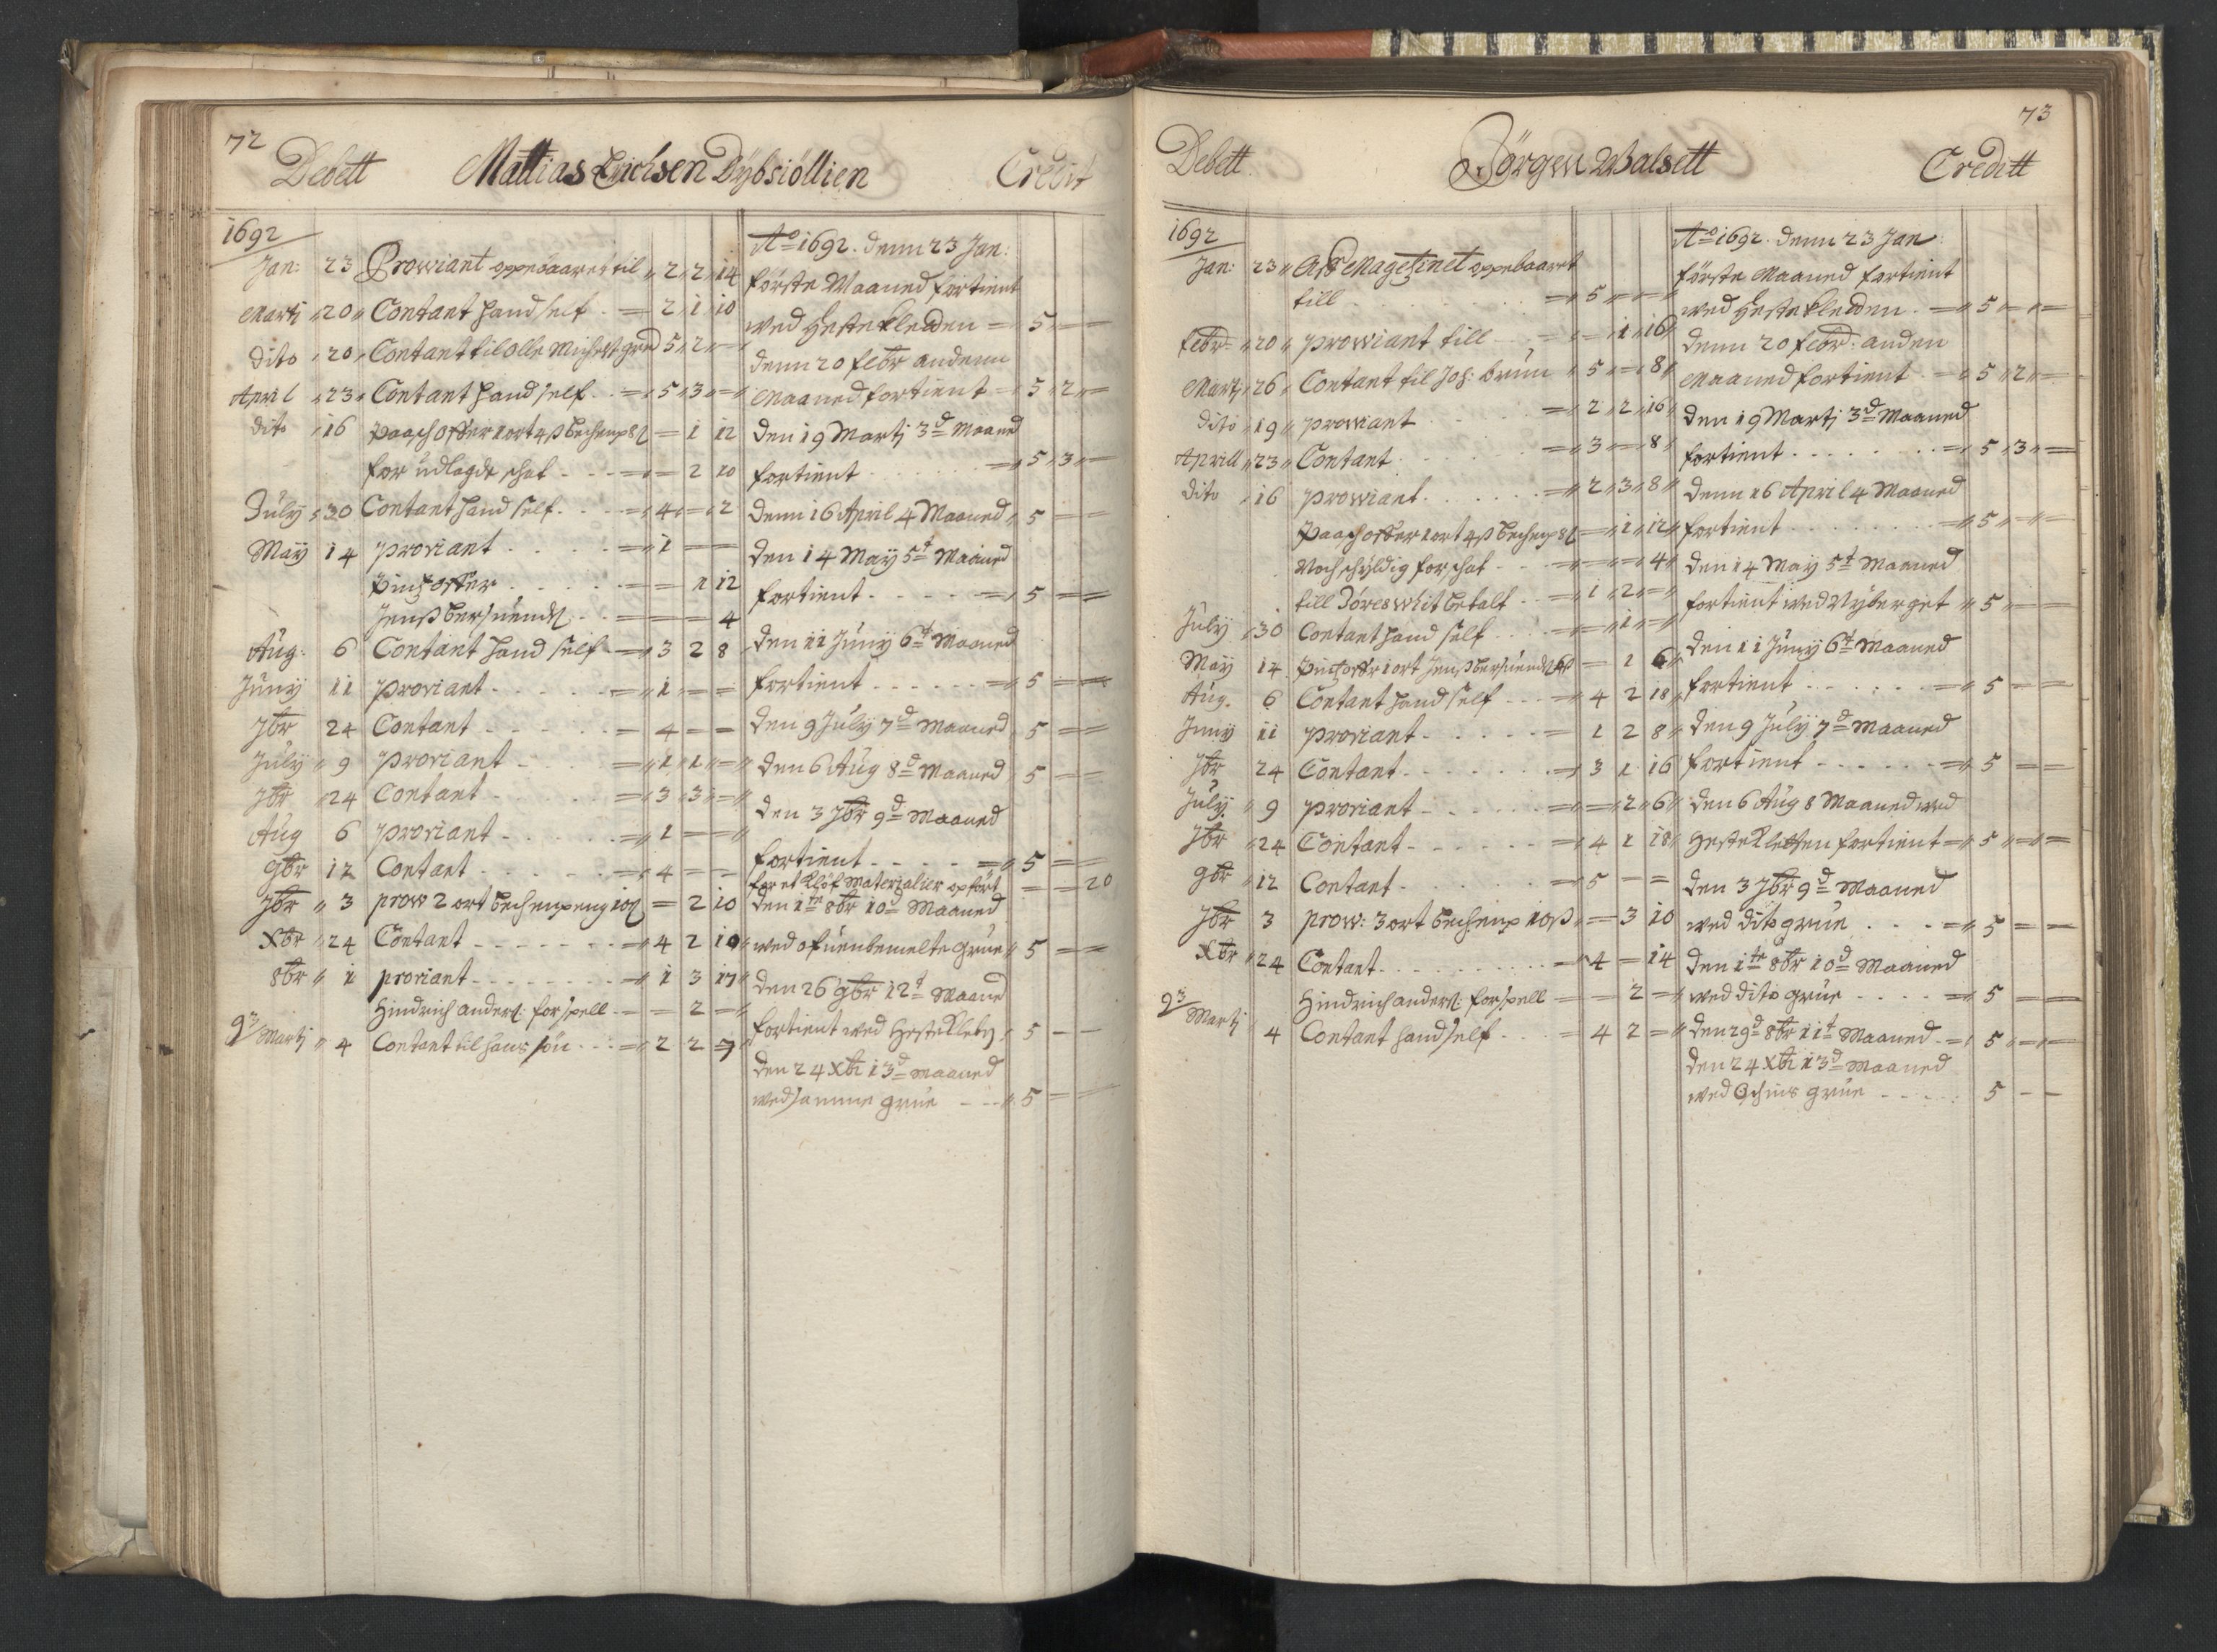 72
Debett Mattias Erichsen Dybsiöllien Credit
1692
Jan: 23 Prowiant oppebaaret til 2 2 14
Marti 20 Contant hand self = 2 1 10
Dito 20 Contant til Olle 5 2 =
April 23 Contant hand self = 5 3 =
dito 16 Paasch offer 1 ort 4 β = 1 12
for udlagde schat = = 2 20
July 30 Contant hand self = 4 = 2
Maÿ 14 proviant = 1 = =
Pintz offer = = 1 12
Jenß = = = 4
Aug: 6 Contant hand self = 3 2 8
Juny 11 proviant = 1 = =
7br 24 Contant = 4 = =
July 9 proviant = 1 1 =
7br 24 Contant = 3 3 =
Aug 6 proviant = 1 = =
9br 12 Contant = 4 = =
7br 3 prow 2 ort = 2 10
Xbr 24 Contant = 4 2 10
8br 1 proviant = 1 3 17
Hindrich anders: for spell = 2 =
93 Marti 4 Contant til hans sön = 2 2 7
Ao 1692. denn 23 Jan:
förste Maaned fortient
wed Hestekletten = 5 = =
denn 20 febr andenn
Maaned fortient = 5 2 =
den 19 Martj 3d Maaned
fortient = 5 3 =
denn 16 April 4 Maaned 5 = =
den 14 Maÿ 5t Maaned
fortient = 5 = =
den 11 Junÿ 6t Maaned
fortient = 5 = =
den 9 July 7d Maaned 5 = =
den 6 Aug 8d Maaned 5 = =
den 3 7br 9d Maaned
fortient = 5 = =
for et Materialier opfört = = 20
den 1te 8br 10d Maaned
wed ofuenbemelte grue 5 = =
den 26 9br 12t Maaned
fortient wed 5 = =
den 24 Xbr 13d Maaned
wed samme grue 5 = =
73
Debett Jörgen Walsett Creditt
1692
Jan: 23 Aff Magetzinet oppebaaret
till = 5 = =
febr 20 prowiant till = = 1 16
Marti 26 Contant til Joh: brun 5 = 8
Dito 19 prowiant = 2 2 16
Aprill 23 Contant = 3 = 8
dito 16 prowiant = 2 3 8
Paasch offer 1 ort 4 β = 1 12
Noch schÿldig for schat = = = 4
till betalt = 1 2 =
July 30 Contant hand self = = 1 =
Maÿ 14 Pintz offer 1 ort Jenß = 1 6
Aug. 6 Contant hand self = 4 2 18
Juny 11 proviant = 1 2 8
7br 24 Contant = 3 1 16
July 9 proviant = = 2 6
7br 24 Contant = 4 1 18
9br 12 Contant = 5 = =
7br 3 prow: 3 ort = 3 10
Xbr 24 Contant = 4 = 14
Hindrich anders: for spell = = 2 =
93 Marti 4 Contant hand self = 4 2 =
Ao 1692. denn 23 Jan
förste Maaned fortient
wed Hestekletten = 5 = =
denn 20 febr: anden
Maaned fortient = 5 2 =
den 19 Martj 3d Maaned
fortient = 5 3 =
denn 16 April 4 Maaned
fortient = 5 = =
den 14 Maÿ 5t Maaned
fortient wed Nyberget 5 = =
den 11 Juny 6t Maaned
fortient = 5 = =
den 9 July 7d Maaned
fortient = 5 = =
den 6 Aug 8 Maaned wed
Hestekletten fortient = 5 = =
den 3 7br 9d Maaned
wed dito grue = 5 = =
den 1te 8br 10d Maaned
wed dito grue = 5 = =
den 29d 8br 11t Maaned = 5 = =
den 24 Xbr 13d Maaned
wed grue 5 = =